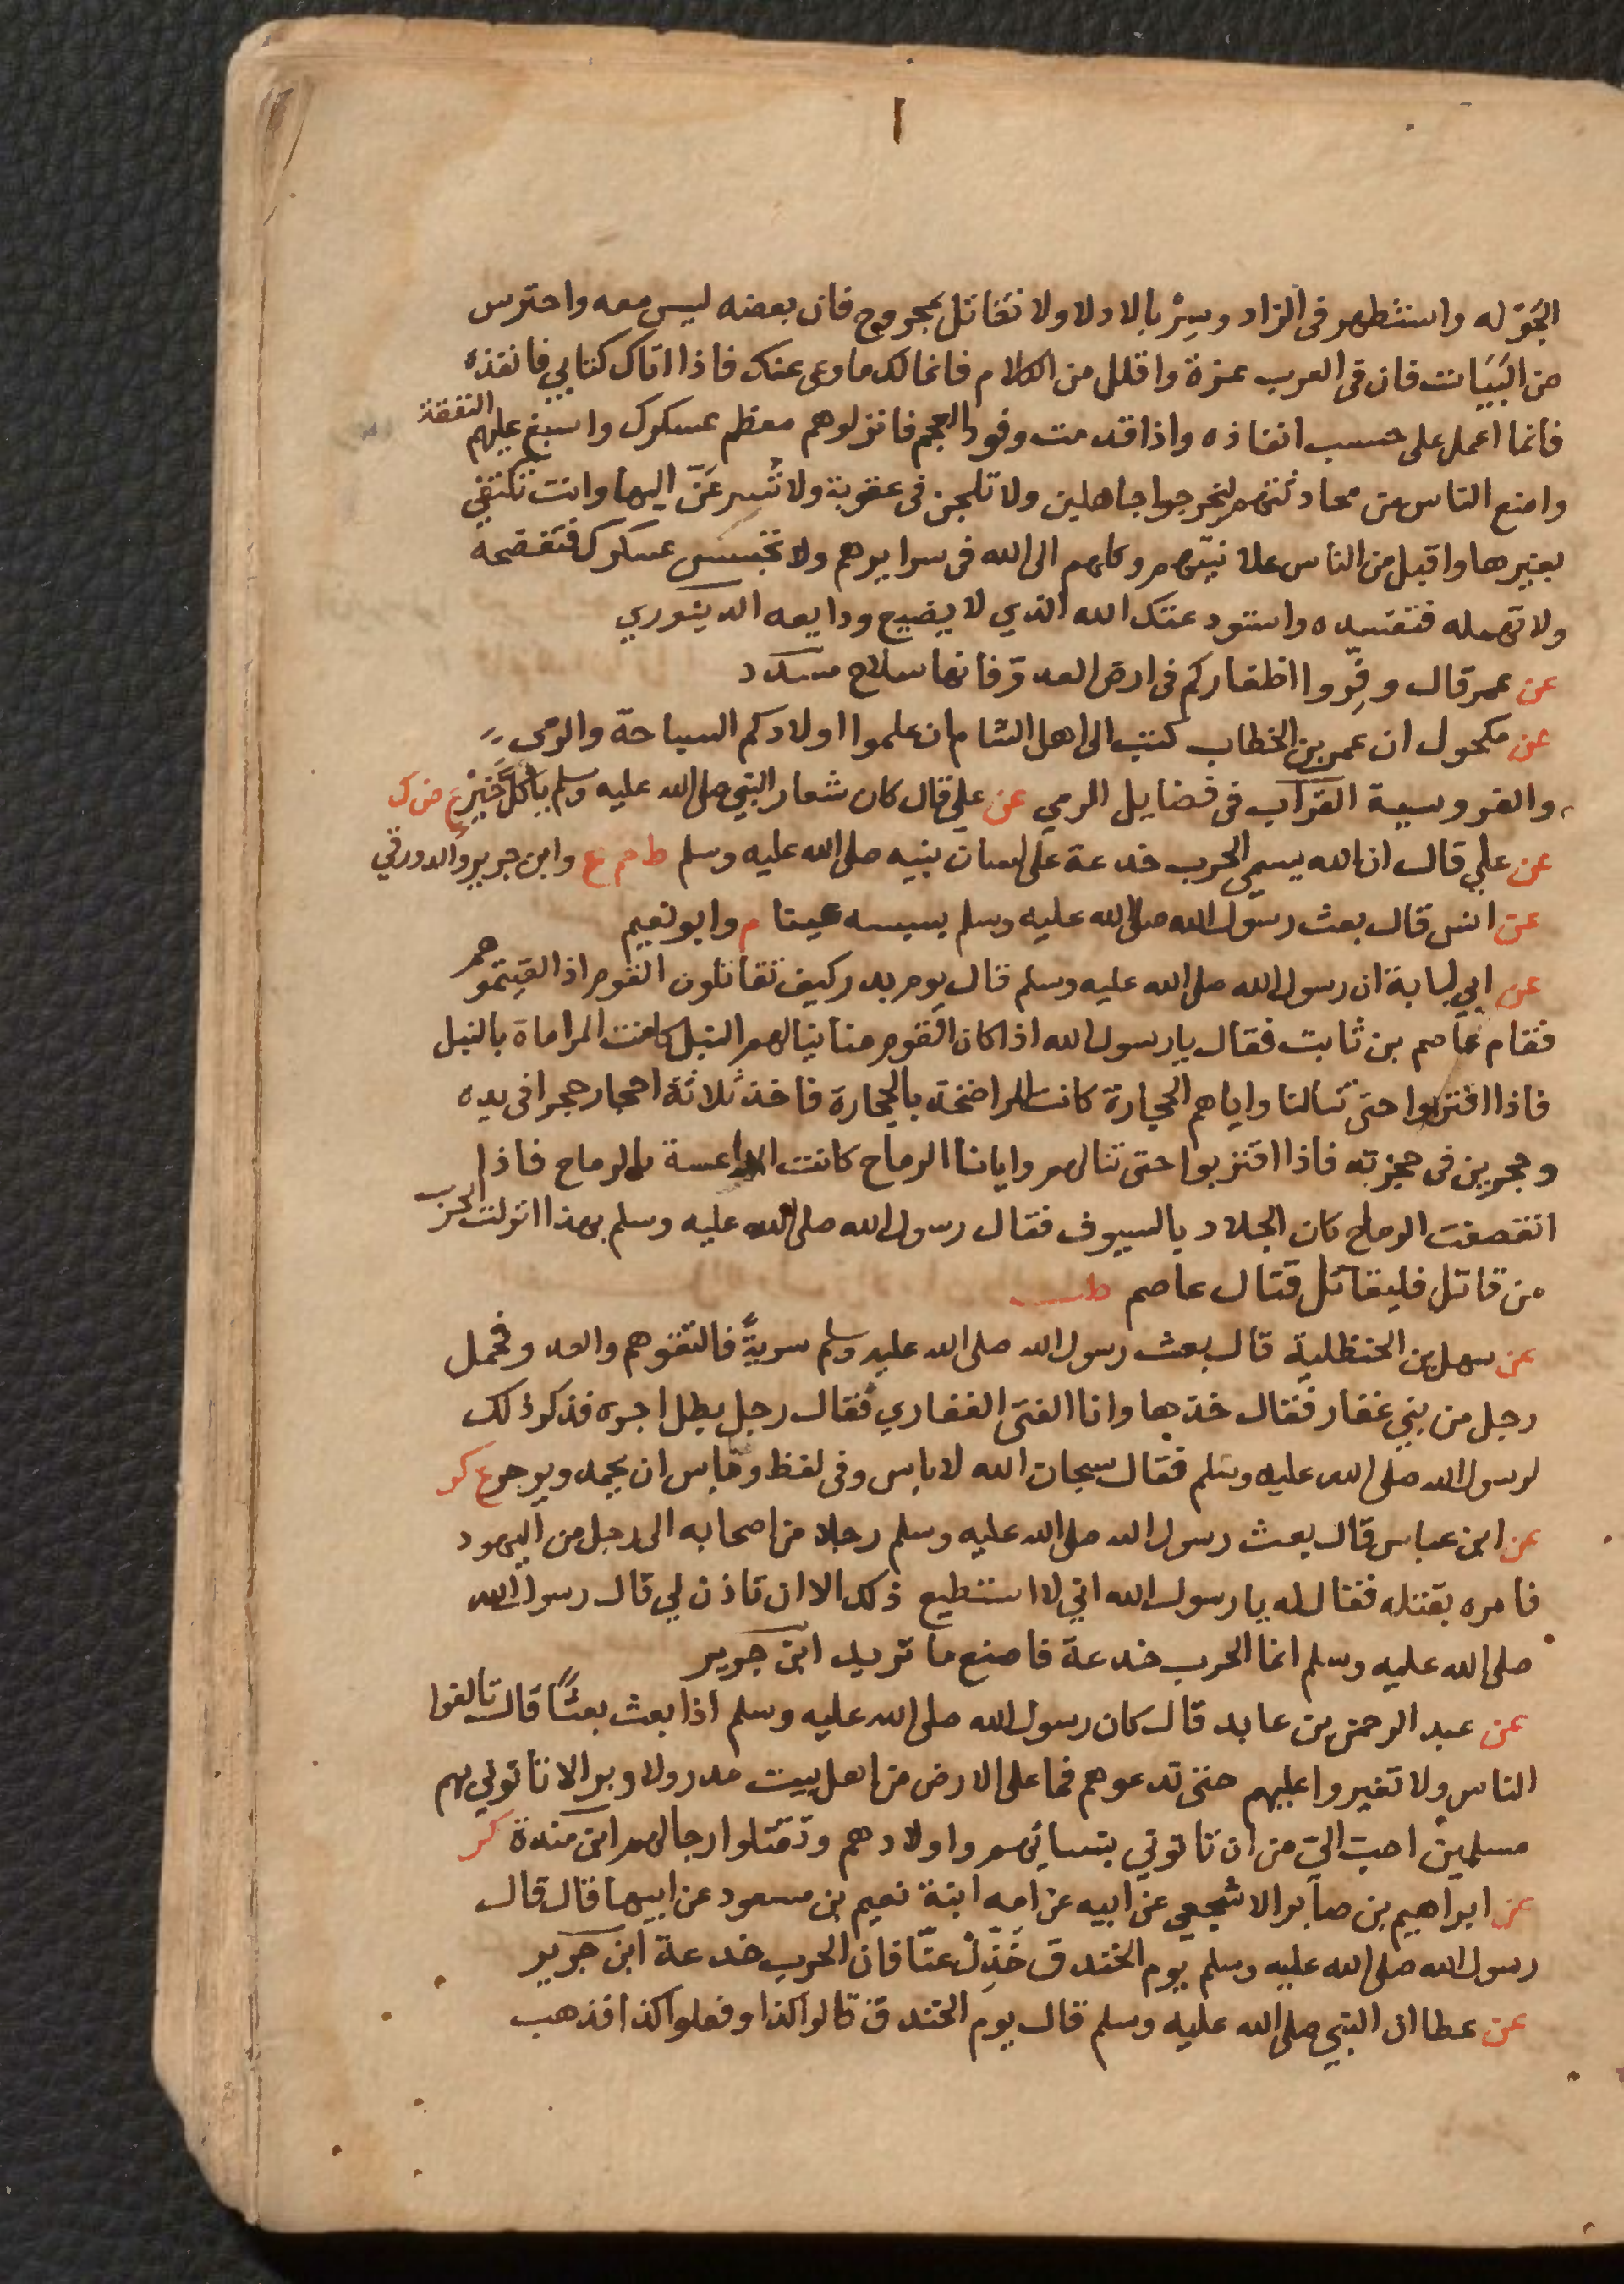 ا
الجوله واستظهر فى الزاد وسِرْ بالادلا ولا تقاتل بمجروح فان بعضه ليس معه واحترس
من البَيَات فان فى العرب عزة واقلل من الكلام فانما لك ما وعى عنك فاذا اتاك كتابي فانفذه
فانما اعمل على حسب انفاذه واذا قدمت وفود العجم فانزلوهم معظم عسكرك واسبغ عليهم النفقة
وامنع الناس من محادثتهم ليخرجوا جاهلين ولا تلجن فى عقوبة ولا تُسرعَنّ اليها وانت تكتفي
بغيرها واقبل من الناس علانيتهم وكلهم الى الله فى سرايرهم ولا تجسس عسكرك فتفضحه
ولا تهمله فتفسده واستودعتك الله الذي لا يضيع ودايعه الدينوري
عن عمر قال وفِّروا اظفاركم فى ارض العدوّ فانها سلاح مسدد
عن مكحول ان عمر بن الخطاب كتب الى اهل الشام ان علموا اولادكم السباحة والرمى
والفروسية القراب فى فضايل الرمي عن علي قال كان شعار النبي صلى الله عليه وسلم يا كل خير ع ض ك
عن علي قال ان الله يسمى الحرب خدعة على لسان نبيه صلى الله عليه وسلم ط حم ع وابن جرير والدورقي
عن انس قال بعث رسول الله صلى الله عليه وسلم بسيسه عينا م وابو نعيم
عن ابي لبابة ان رسول الله صلى الله عليه وسلم قال يوم بدر كيف تقاتلون القوم اذا لقيتموهم
فقام عاصم بن ثابت فقال يا رسول الله اذا كان القوم منا ينالهم النبل كانت المراماة بالنبل
فاذا اقتربوا حتى تنالنا واياهم الحجارة كانت المراضخة بالحجارة فاخذ ثلاثة احجار حجرا فى يده
وحجرين فى حجزته فاذا اقتربوا حتى تنالهم وايانا الرماح كانت المداعسة بالرماح فاذا
انقصفت الرماح كان الجلاد بالسيوف فقال رسول الله صلى الله عليه وسلم بهذا انزلت الحرب
من قاتل فليقاتل قتال عاصم طب
عن سهل بن الحنظلية قال بعث رسول الله صلى الله عليه وسلم سريةً فالتقوهم والعدو فحمل
رجل من بني غفار فقال خذها وانا الفتى الغفاري فقال رجل بطل اجره فذكر ذلك
لرسول الله صلى الله عليه وسلم فقال سبحان الله لا باس وفى لفظ وما باس ان يحمد ويوجر ع كر
عن ابن عباس قال بعث رسول الله صلى الله عليه وسلم رجلا من اصحابه الى رجل من اليهود
فامره بقتله فقال له يا رسول الله اني لا استطيع ذلك الا ان تاذن لي قال رسول الله
صلى الله عليه وسلم انما الحرب خدعة فاصنع ما تريد ابن جرير
عن عبد الرحمن بن عايد قال كان رسول الله صلى الله عليه وسلم اذا بعث بعثًا قال تالفوا
الناس ولا تغيروا عليهم حتى تدعوهم فما على الارض من اهل بيت مدر ولا وبر الا تاتوني بهم
مسلمين احب اليّ من ان تاتوني بنسائهم واولادهم وتقتلوا رجالهم ابن مندة كر
عن ابراهيم بن صابر الاشجعي عن ابيه عن امه ابنة نعيم بن مسعود عن ابيها قال قال
رسول الله صلى الله عليه وسلم يوم الخندق خَذِّلْ عنّا فان الحرب خدعة ابن جرير
عن عطا ان النبي صلى الله عليه وسلم قال يوم الخندق قالوا كذا وفعلوا كذا فذهب